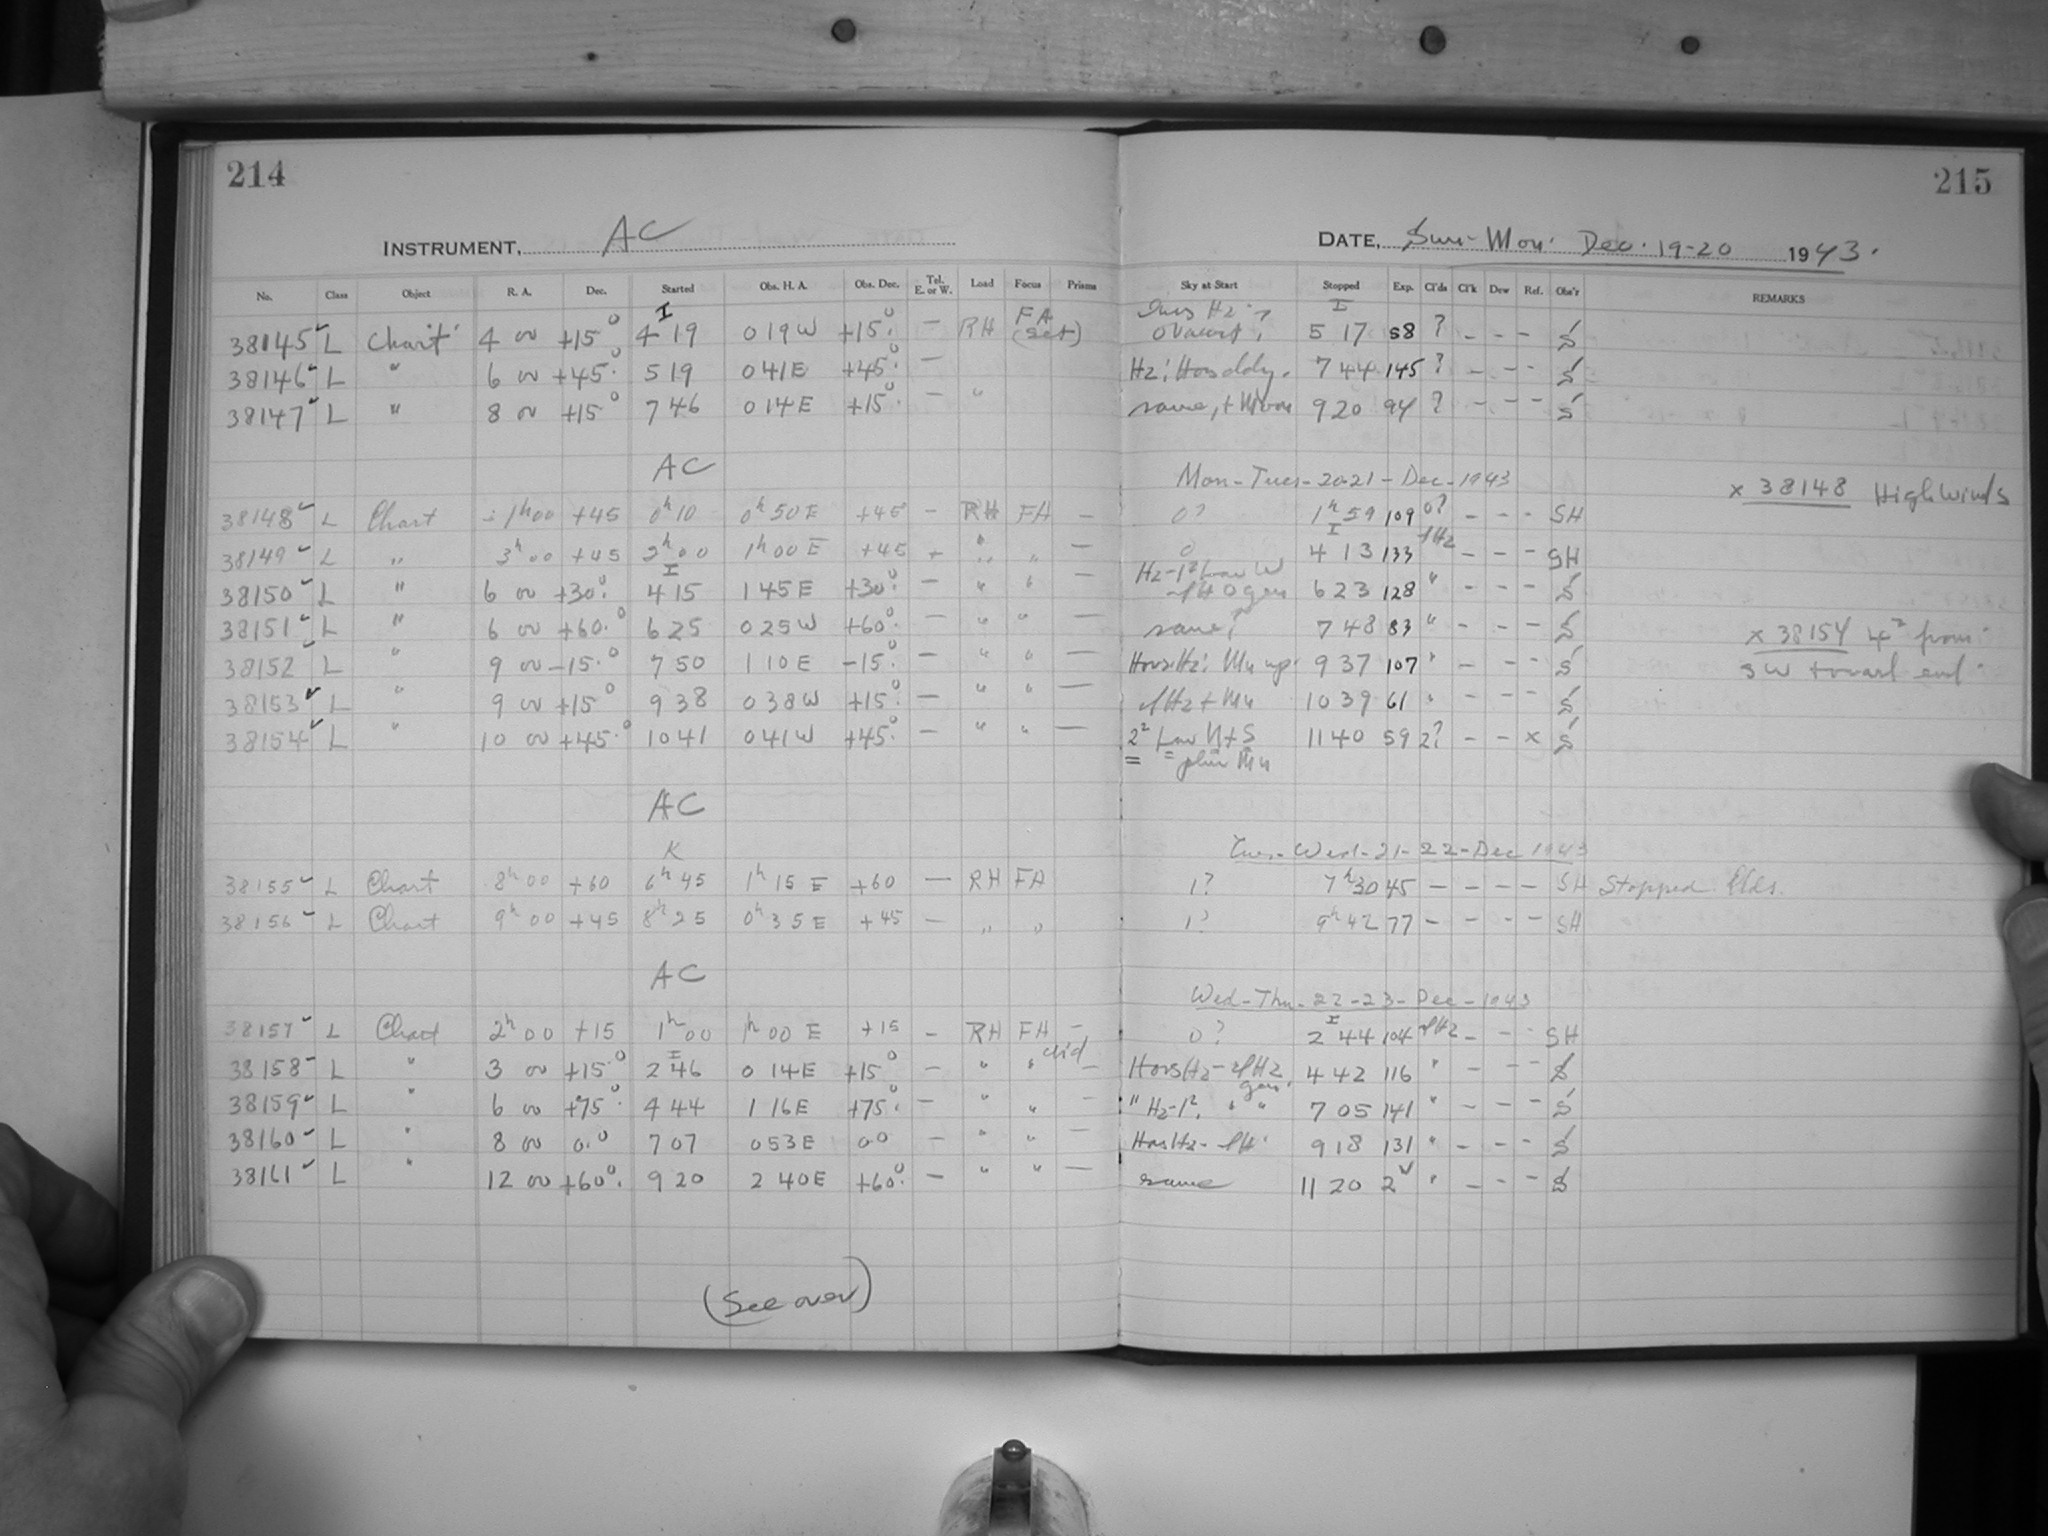 214
215
INSTRUMENT, AC
DATE, Sun-Mon. Dec. 19-20 1943.
No. Class Object R. A. Dec. Started Obs. H. A. Obs. Dec. Tel. E. or W. Load Focus Prisms Sky at Start Stopped Exp. Cl'ds Cl'k Dew Ref. Obs'r REMARKS
38145 L Chart 4 00 +15° 4 19 0 19 W +15° — RH FA (set) 5 17 58 ? - - - S
38146 L " 6 00 +45° 5 19 0 41 E +45° — Hz; 7 44 145 ? - - - S
38147 L " 8 00 +15° 7 46 0 14 E +15° — " same, + Moon 9 20 94 ? - - - S
AC
Mon-Tues-20-21-Dec-1943
38148 L Chart 1h00 +45 0h10 0h50E +45 - RH FA - 0? 1h59 109 0? - - - SH x 38148 High Winds
38149 L " 3h00 +45 2h00 1h00E +45 " " - 0 4 13 133 - - - SH
38150 L " 6 00 +30° 4 15 1 45 E +30° — " " - Hz-1² Low W 6 23 128 " - - - S
38151 L " 6 00 +60° 6 25 0 25 W +60° — " " — same? 7 48 83 " - - - S x 38154 4² from
38152 L " 9 00 -15° 7 50 1 10 E -15° — " " — 9 37 107 " - - - S SW toward end
38153 L " 9 00 +15° 9 38 0 38 W +15° — " " — 10 39 61 " - - - S
38154 L " 10 00 +45° 10 41 0 41 W +45° — " " — 2² Low N+S 11 40 59 2? - - x S
AC
Tues-Wed-21-22-Dec 1943
38155 L Chart 8h00 +60 6h45 1h15 E +60 — RH FA 1? 7h30 45 - - - - SH Stopped Clds.
38156 L Chart 9h00 +45 8h25 0h35 E +45 — " " 1? 9h42 77 - - - - SH
AC
Wed-Thu-22-23-Dec-1943
38157 L Chart 2h00 +15 1h00 1h00 E +15 - RH FA - 0? 2 44 104 - - - SH
38158 L " 3 00 +15° 2 46 0 14 E +15° - " " - 4 42 116 " - - - S
38159 L " 6 00 +75° 4 44 1 16 E +75° - " " - " Hz-1², " " 7 05 141 " - - - S
38160 L " 8 00 0.0 7 07 0 53 E 00 - " " - 9 18 131 " - - - S
38161 L " 12 00 +60° 9 20 2 40 E +60° - " " — same 11 20 2 " - - - S
(See over)